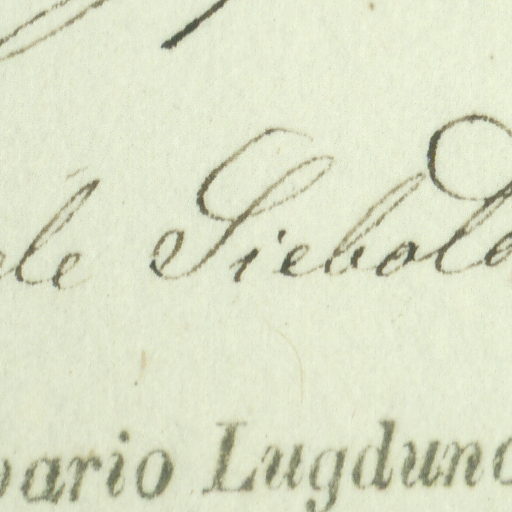 de Siebold
bario Lugduno